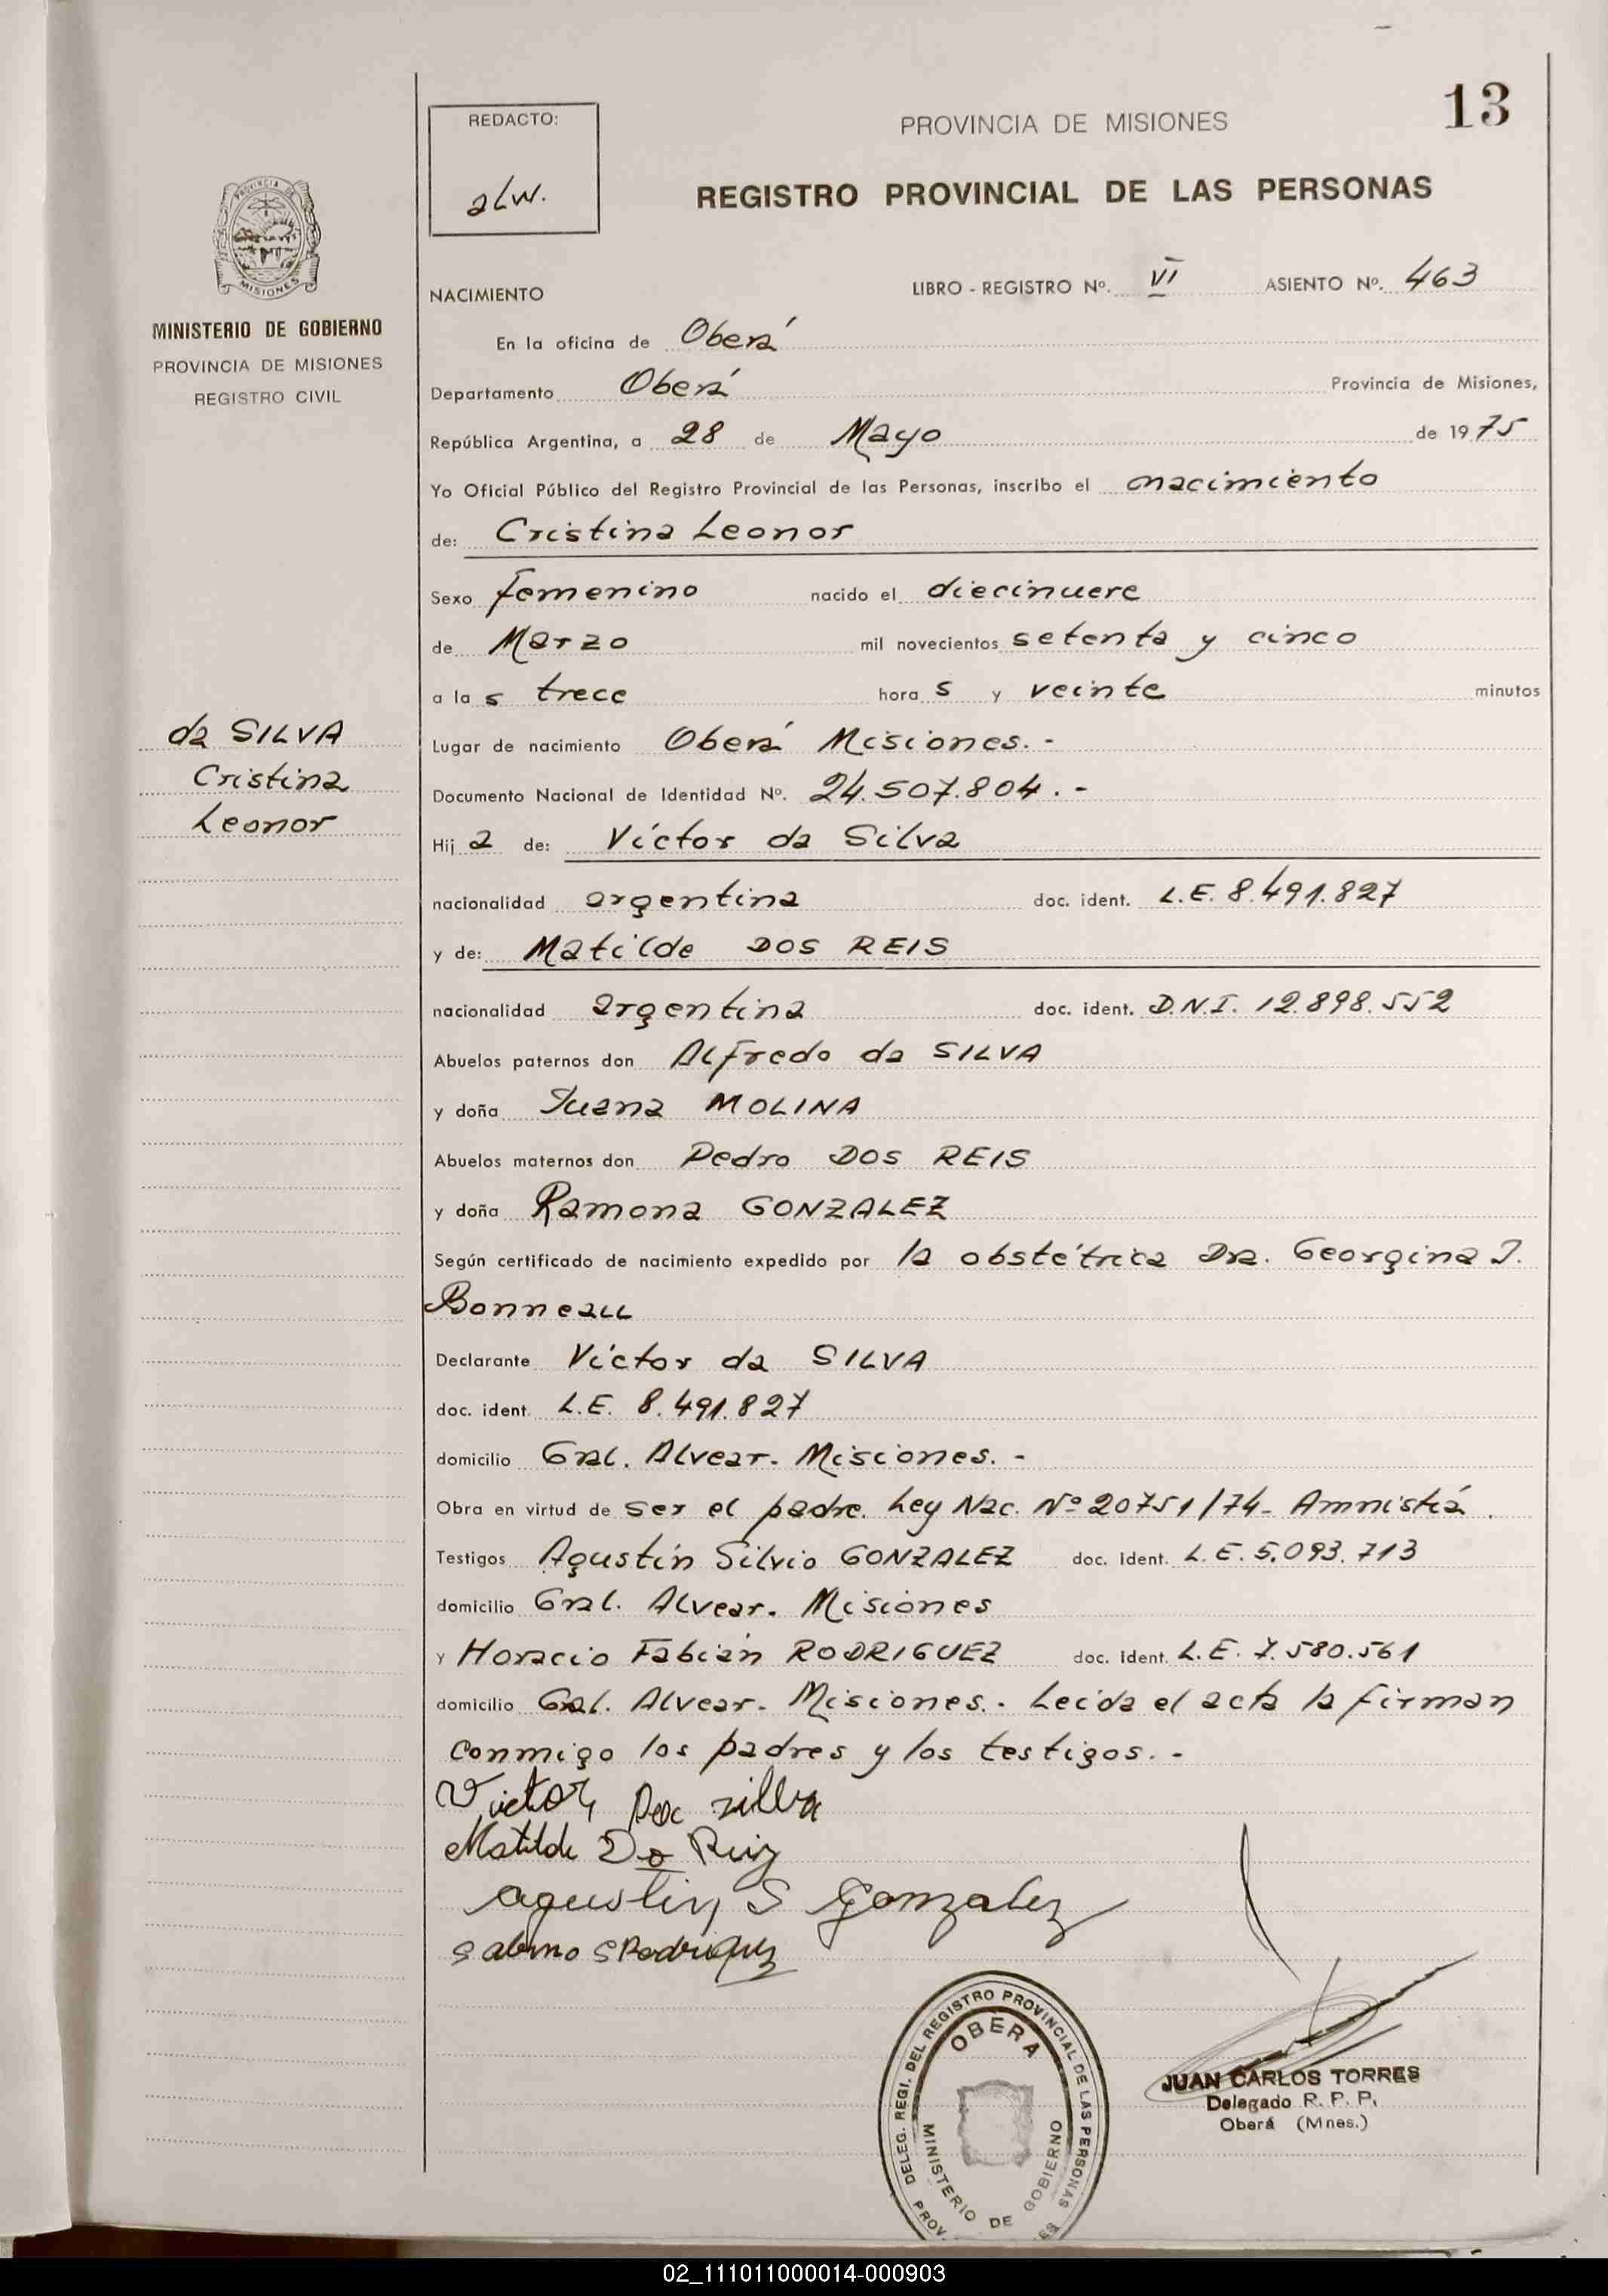 13
REDACTO:
aLW.
PROVINCIA DE MISIONES
REGISTRO PROVINCIAL DE LAS PERSONAS
PROVINCIA DE
MISIONES
MINISTERIO DE GOBIERNO
PROVINCIA DE MISIONES
REGISTRO CIVIL
NACIMIENTO
LIBRO - REGISTRO Nº. VI ASIENTO Nº. 463
En la oficina de Oberá
Departamento Oberá Provincia de Misiones,
República Argentina, a 28 de Mayo de 1975
Yo Oficial Público del Registro Provincial de las Personas, inscribo el nacimiento
de: Cristina Leonor
Sexo femenino nacido el diecinueve
de Marzo mil novecientos setenta y cinco
a las trece horas y veinte minutos
da SILVA
Cristina
Leonor
Lugar de nacimiento Oberá Misiones.-
Documento Nacional de Identidad Nº. 24.507.804.-
Hija de: Víctor da Silva
nacionalidad argentina doc. ident. L.E. 8.491.827
y de: Matilde DOS REIS
nacionalidad argentina doc. ident. D.N.I. 12.898.552
Abuelos paternos don Alfredo da SILVA
y doña Juana MOLINA
Abuelos maternos don Pedro DOS REIS
y doña Ramona GONZALEZ
Según certificado de nacimiento expedido por la obstétrica Dra. Georgina J.
Bonneau
Declarante Víctor da SILVA
doc. ident. L.E. 8.491.827
domicilio Gral. Alvear. Misiones.-
Obra en virtud de ser el padre. Ley Nac. Nº 20751/74- Amnistiá.
Testigos Agustín Silvio GONZALEZ doc. ident. L.E. 5.093.713
domicilio Gral. Alvear. Misiones
y Horacio Fabián RODRIGUEZ doc. ident. L.E. 7.580.561
domicilio Gral. Alvear. Misiones.- Leida el acta la firman
conmigo los padres y los testigos.-
Victor Da zillva
Matilde Do Ruiz
agustin S gonzalez
Rodriguez
DELEG. REGI. DEL REGISTRO PROVINCIAL DE LAS PERSONAS
OBERA
MINISTERIO DE GOBIERNO
PROV.
JUAN CARLOS TORRES
Delegado R. P. P.
Oberá (Mnes.)
02_111011000014-000903